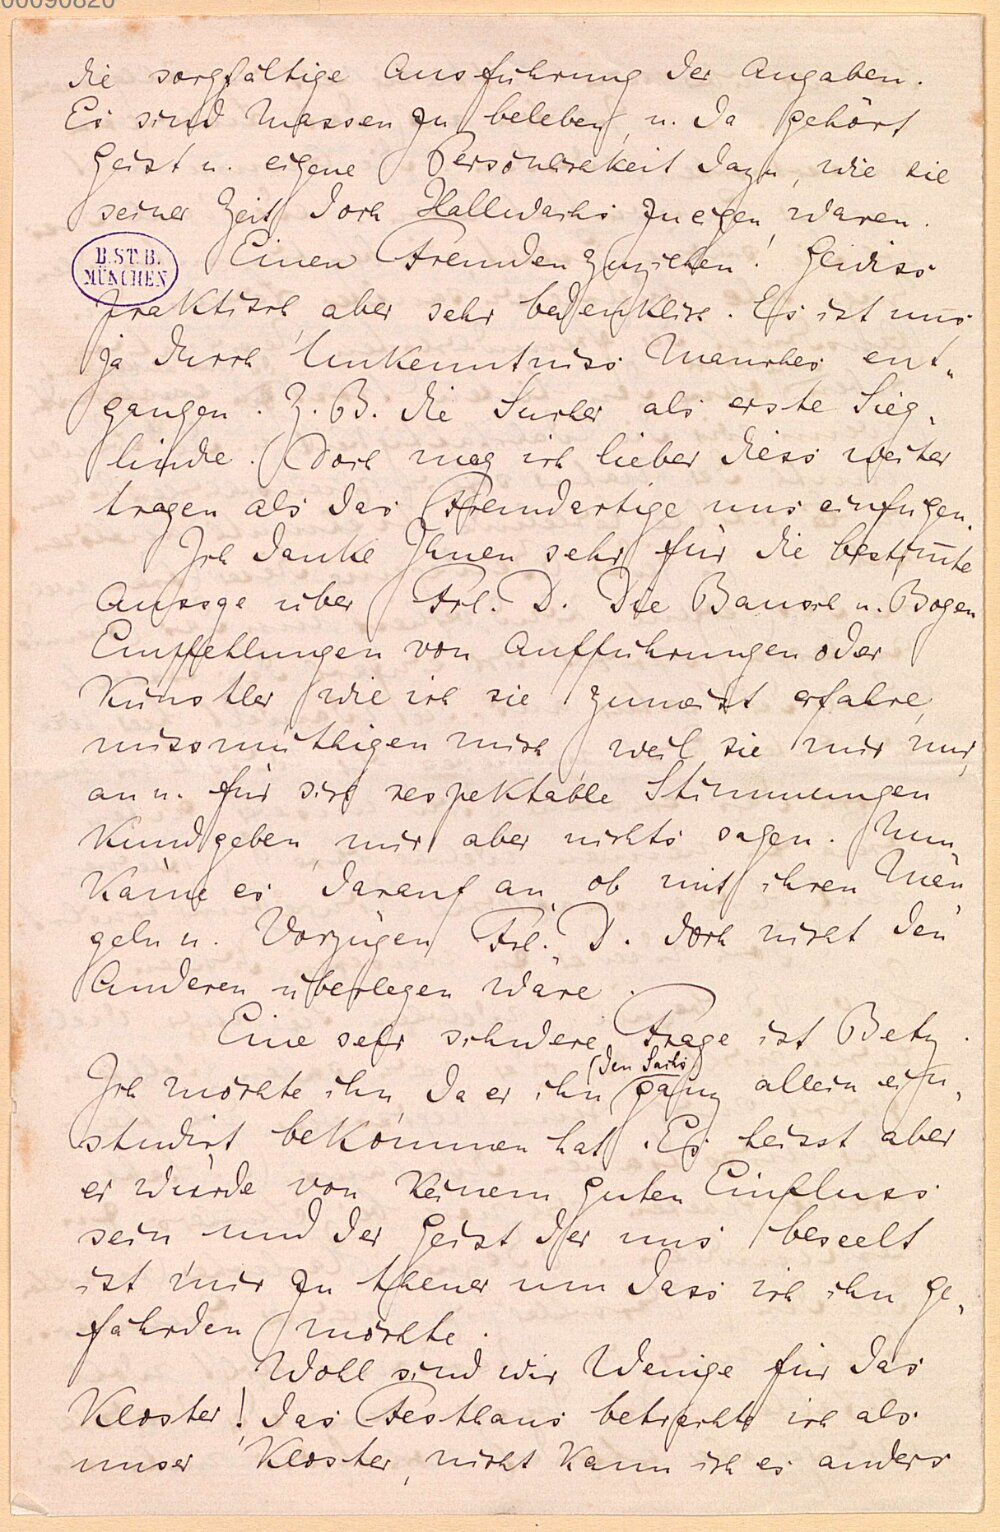 00090820
die sorgfältige Ausführung der Angaben.
Es sind Massen zu beleben, u. da gehört
Geist u. eigene Persönlichkeit dazu, wie sie
seiner Zeit doch Hallwachs zu eigen waren.
B.ST.B.
MÜNCHEN
Einen Fremden zuziehen! Gewiss
praktisch aber sehr bedenklich. Es ist uns
ja durch Unkenntniss Manches ent-
gangen. Z. B. die Sucher als erste Sieg-
linde. Doch mag ich lieber diess weiter
tragen als das Fremdartige uns einfügen.
Ich danke Ihnen sehr für die bestimmte
Aussage über Frl. D. Die Bausch u. Bogen
Empfehlungen von Aufführungen oder
Künstler wie ich sie zumeist erfahre,
missmuthigen mich weil sie mir nur,
an u. für sich respektable Stimmungen
kundgeben, mir aber nichts sagen. Nun
käme es darauf an, ob mit ihren Män
geln u. Vorzügen Frl. D. doch nicht den
Anderen überlegen wäre.
Eine sehr schwere Frage ist Betz.
(den Sachs)
Ich möchte ihn, da er ihn ganz allein ein-
studirt bekommen hat. Es heisst aber
er würde von keinem guten Einfluss
sein und der Geist der uns beseelt
ist mir zu theuer um dass ich ihn ge-
fährden möchte.
Wohl sind wir Wenige für das
Kloster! Das Festhaus betrachte ich als
unser Kloster, nicht kann ich es anders